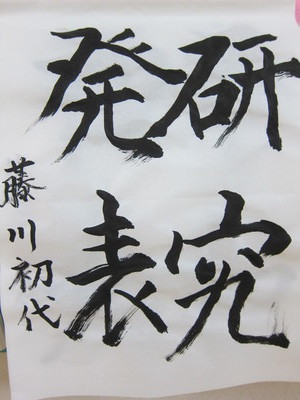 研究
発表
藤川初代